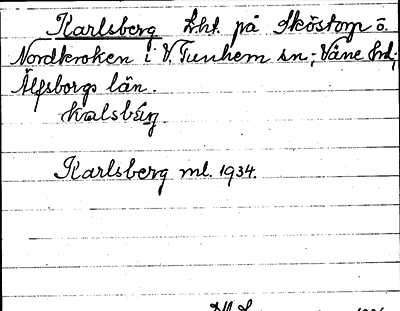 Karlsberg Lht. på Sköstorp ö.
Nordkroken i V. Tunhem sn; Väne hd;
Älfsborgs län.
kalsbärj
Karlsberg ml. 1934.